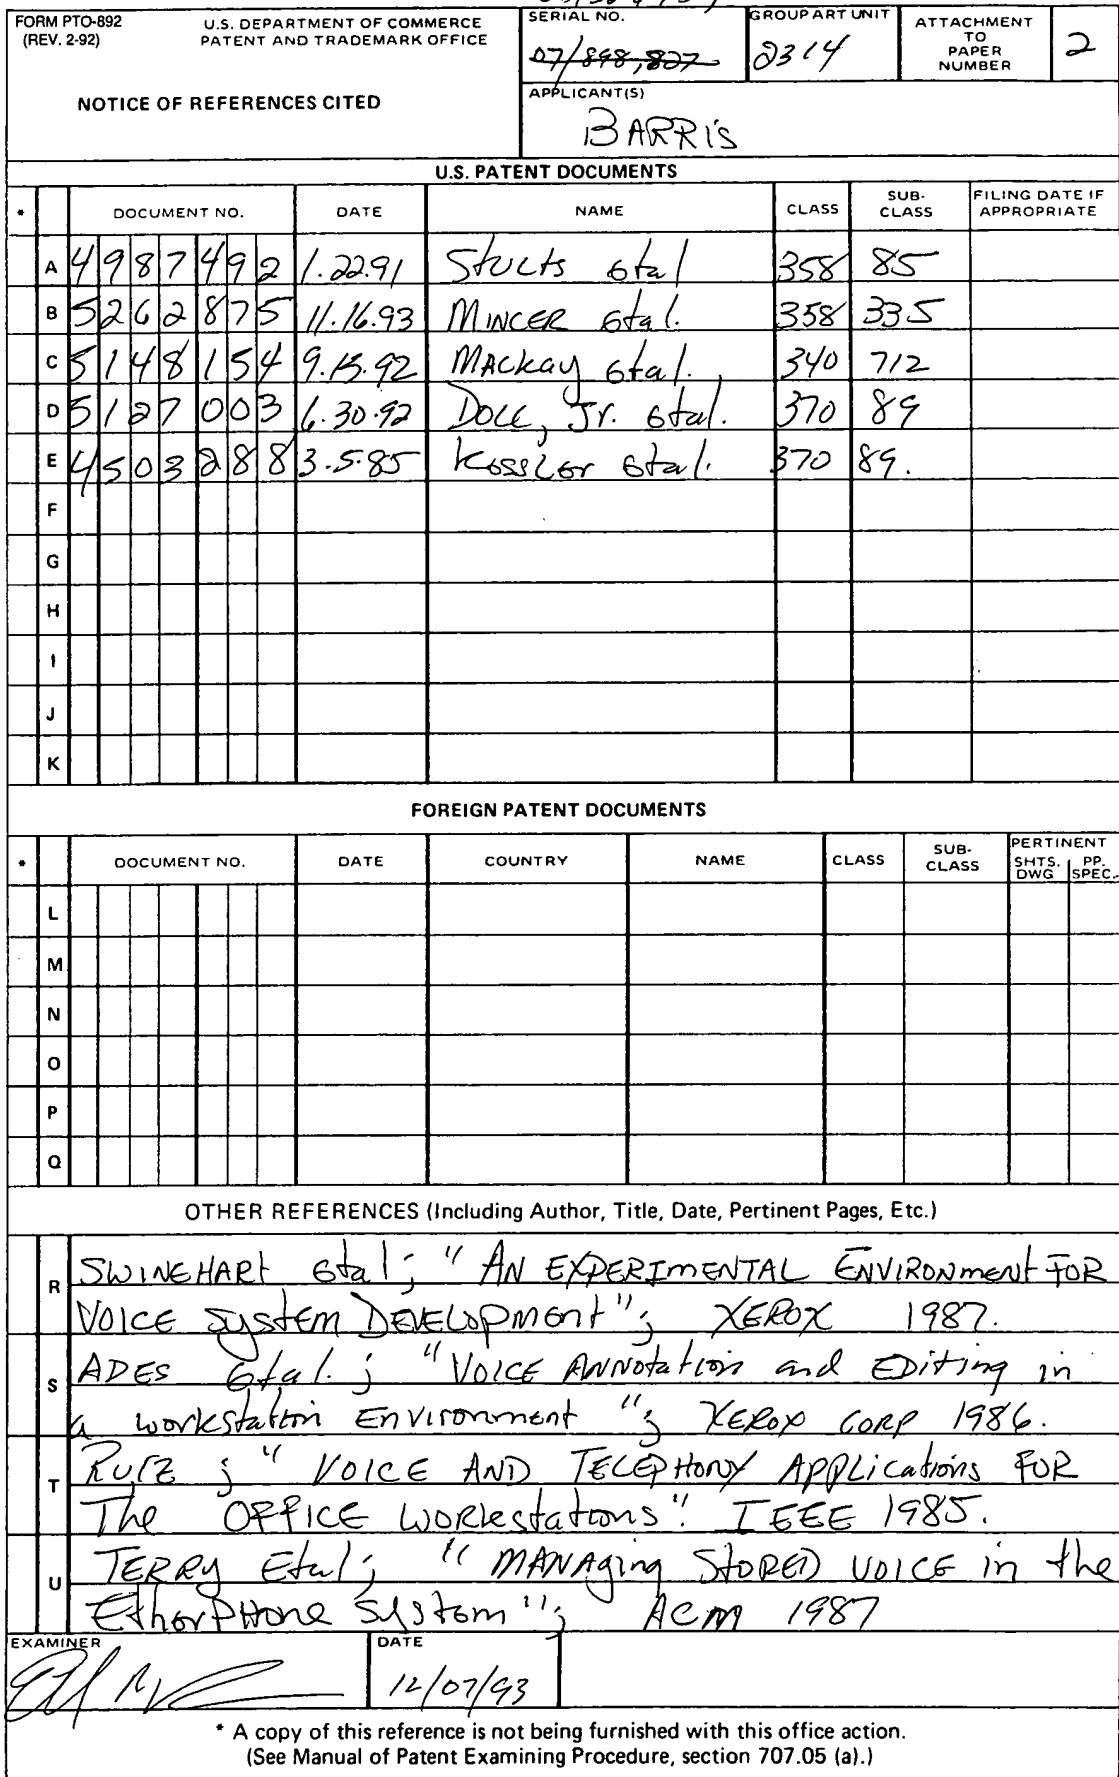 FORM PTO-892 U.S. DEPARTMENT OF COMMERCE
(REV. 2-92) PATENT AND TRADEMARK OFFICE
NOTICE OF REFERENCES CITED
SERIAL NO.
07/898,827
GROUP ART UNIT
2314
ATTACHMENT
TO
PAPER
NUMBER
2
APPLICANT(S)
BARRIS
U.S. PATENT DOCUMENTS
* DOCUMENT NO. DATE NAME CLASS SUB-CLASS FILING DATE IF APPROPRIATE
A 4987492 1.22.91 Stults etal 358 85
B 5262875 11.16.93 MINCER etal. 358 335
C 5148154 9.15.92 Mackay etal. 340 712
D 5127003 6.30.92 Doll, Jr. etal. 370 89
E 4503288 3.5.85 Kessler etal. 370 89.
F
G
H
I
J
K
FOREIGN PATENT DOCUMENTS
* DOCUMENT NO. DATE COUNTRY NAME CLASS SUB-CLASS PERTINENT SHTS. DWG PP. SPEC.
L
M
N
O
P
Q
OTHER REFERENCES (Including Author, Title, Date, Pertinent Pages, Etc.)
R SWINEHART etal; "AN EXPERIMENTAL ENVIRONMENT FOR
VOICE System DEVELOPMENT"; XEROX 1987.
S ADES etal.; "VOICE ANNOtation and EDiting in
a workstation Environment"; XEROX CORP 1986.
T RUIZ; "VOICE AND TELEPHONY APPLications FOR
The OFFICE WORKstations". IEEE 1985.
U TERRY Etal; "MANAging STORED VOICE in the
EtherPHone System"; ACM 1987
EXAMINER
DATE
12/07/93
* A copy of this reference is not being furnished with this office action.
(See Manual of Patent Examining Procedure, section 707.05 (a).)